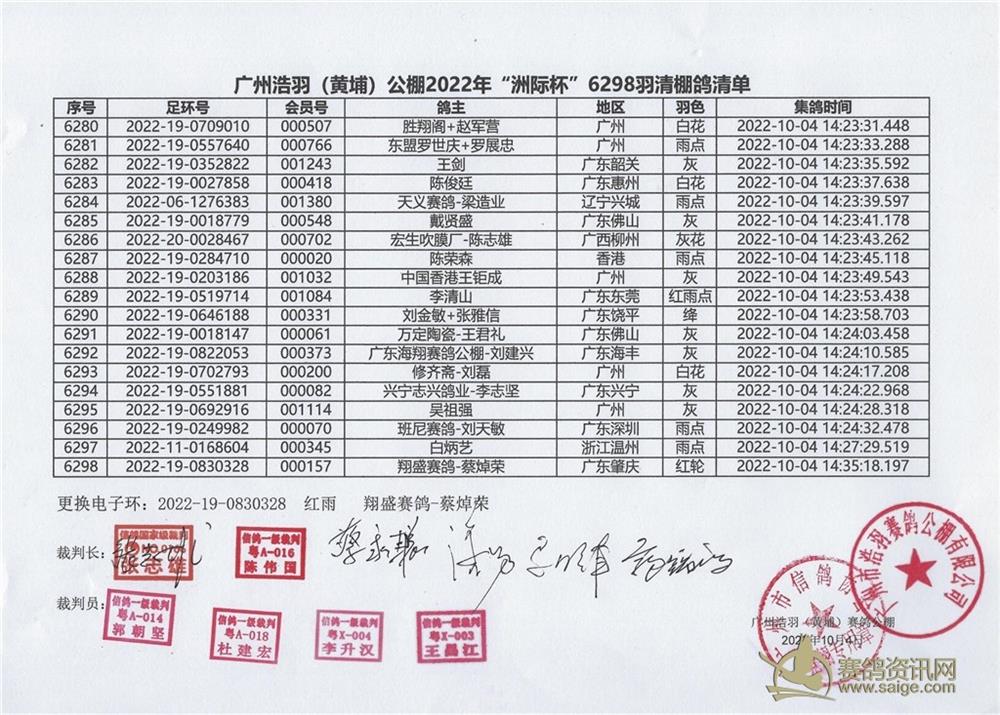 广州浩羽（黄埔）公棚2022年“洲际杯”6298羽清棚鸽清单
序号 足环号 会员号 鸽主 地区 羽色 集鸽时间
6280 2022-19-0709010 000507 胜翔阁+赵军营 广州 白花 2022-10-04 14:23:31.448
6281 2022-19-0557640 000766 东盟罗世庆+罗展忠 广州 雨点 2022-10-04 14:23:33.288
6282 2022-19-0352822 001243 王剑 广东韶关 灰 2022-10-04 14:23:35.592
6283 2022-19-0027858 000418 陈俊廷 广东惠州 白花 2022-10-04 14:23:37.638
6284 2022-06-1276383 001380 天义赛鸽-梁造业 辽宁兴城 雨点 2022-10-04 14:23:39.597
6285 2022-19-0018779 000548 戴贤盛 广东佛山 灰 2022-10-04 14:23:41.178
6286 2022-20-0028467 000702 宏生吹膜厂-陈志雄 广西柳州 灰花 2022-10-04 14:23:43.262
6287 2022-19-0284710 000020 陈荣森 香港 雨点 2022-10-04 14:23:45.118
6288 2022-19-0203186 001032 中国香港王钜成 广州 灰 2022-10-04 14:23:49.543
6289 2022-19-0519714 001084 李清山 广东东莞 红雨点 2022-10-04 14:23:53.438
6290 2022-19-0646188 000331 刘金敏+张雅信 广东饶平 绛 2022-10-04 14:23:58.703
6291 2022-19-0018147 000061 万定陶瓷-王君礼 广东佛山 灰 2022-10-04 14:24:03.458
6292 2022-19-0822053 000373 广东海翔赛鸽公棚-刘建兴 广东海丰 灰 2022-10-04 14:24:10.585
6293 2022-19-0702793 000200 修齐斋-刘磊 广州 白花 2022-10-04 14:24:17.208
6294 2022-19-0551881 000082 兴宁志兴鸽业-李志坚 广东兴宁 灰 2022-10-04 14:24:22.968
6295 2022-19-0692916 001114 吴祖强 广州 灰 2022-10-04 14:24:28.318
6296 2022-19-0249982 000070 班尼赛鸽-刘天敏 广东深圳 雨点 2022-10-04 14:24:32.478
6297 2022-11-0168604 000345 白炳艺 浙江温州 雨点 2022-10-04 14:27:29.519
6298 2022-19-0830328 000157 翔盛赛鸽-蔡焯荣 广东肇庆 红轮 2022-10-04 14:35:18.197
更换电子环：2022-19-0830328 红雨 翔盛赛鸽-蔡焯荣
裁判长：
信鸽国家级裁判
志雄
信鸽一级裁判
粤A-016
陈伟国
裁判员：
信鸽一级裁判
粤A-014
郭朝坚
信鸽一级裁判
粤A-018
杜建宏
信鸽一级裁判
粤X-004
李升汉
信鸽一级裁判
粤X-003
王昌江
州市浩羽赛鸽公棚有限公司
市信鸽协
广州浩羽（黄埔）赛鸽公棚
年10月4
赛鸽资讯网
www.saige.com